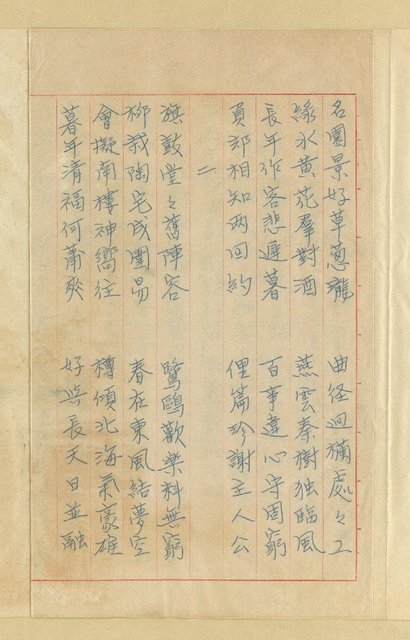 名園景好草蔥蘢　曲径迴欄處々工
綠水黄花羣對酒　燕雲秦樹独臨風
長年作客悲遲暮　百事違心守固窮
頁部相知两回約　俚篇珍謝主人公
二
旗鼓堂々舊陣容　鷺鷗歡樂料無窮
柳栽陶宅成圍易　春在東風結夢空
會擬南樓神嚮往　樽傾北海氣豪雄
暮年清福何蕭爽　好共長天日並融